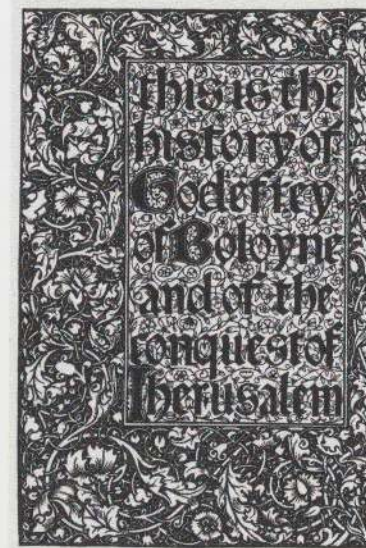 this is the
history of
Godefrey
of Boloyne
and of the
conquest of
Iherusalem